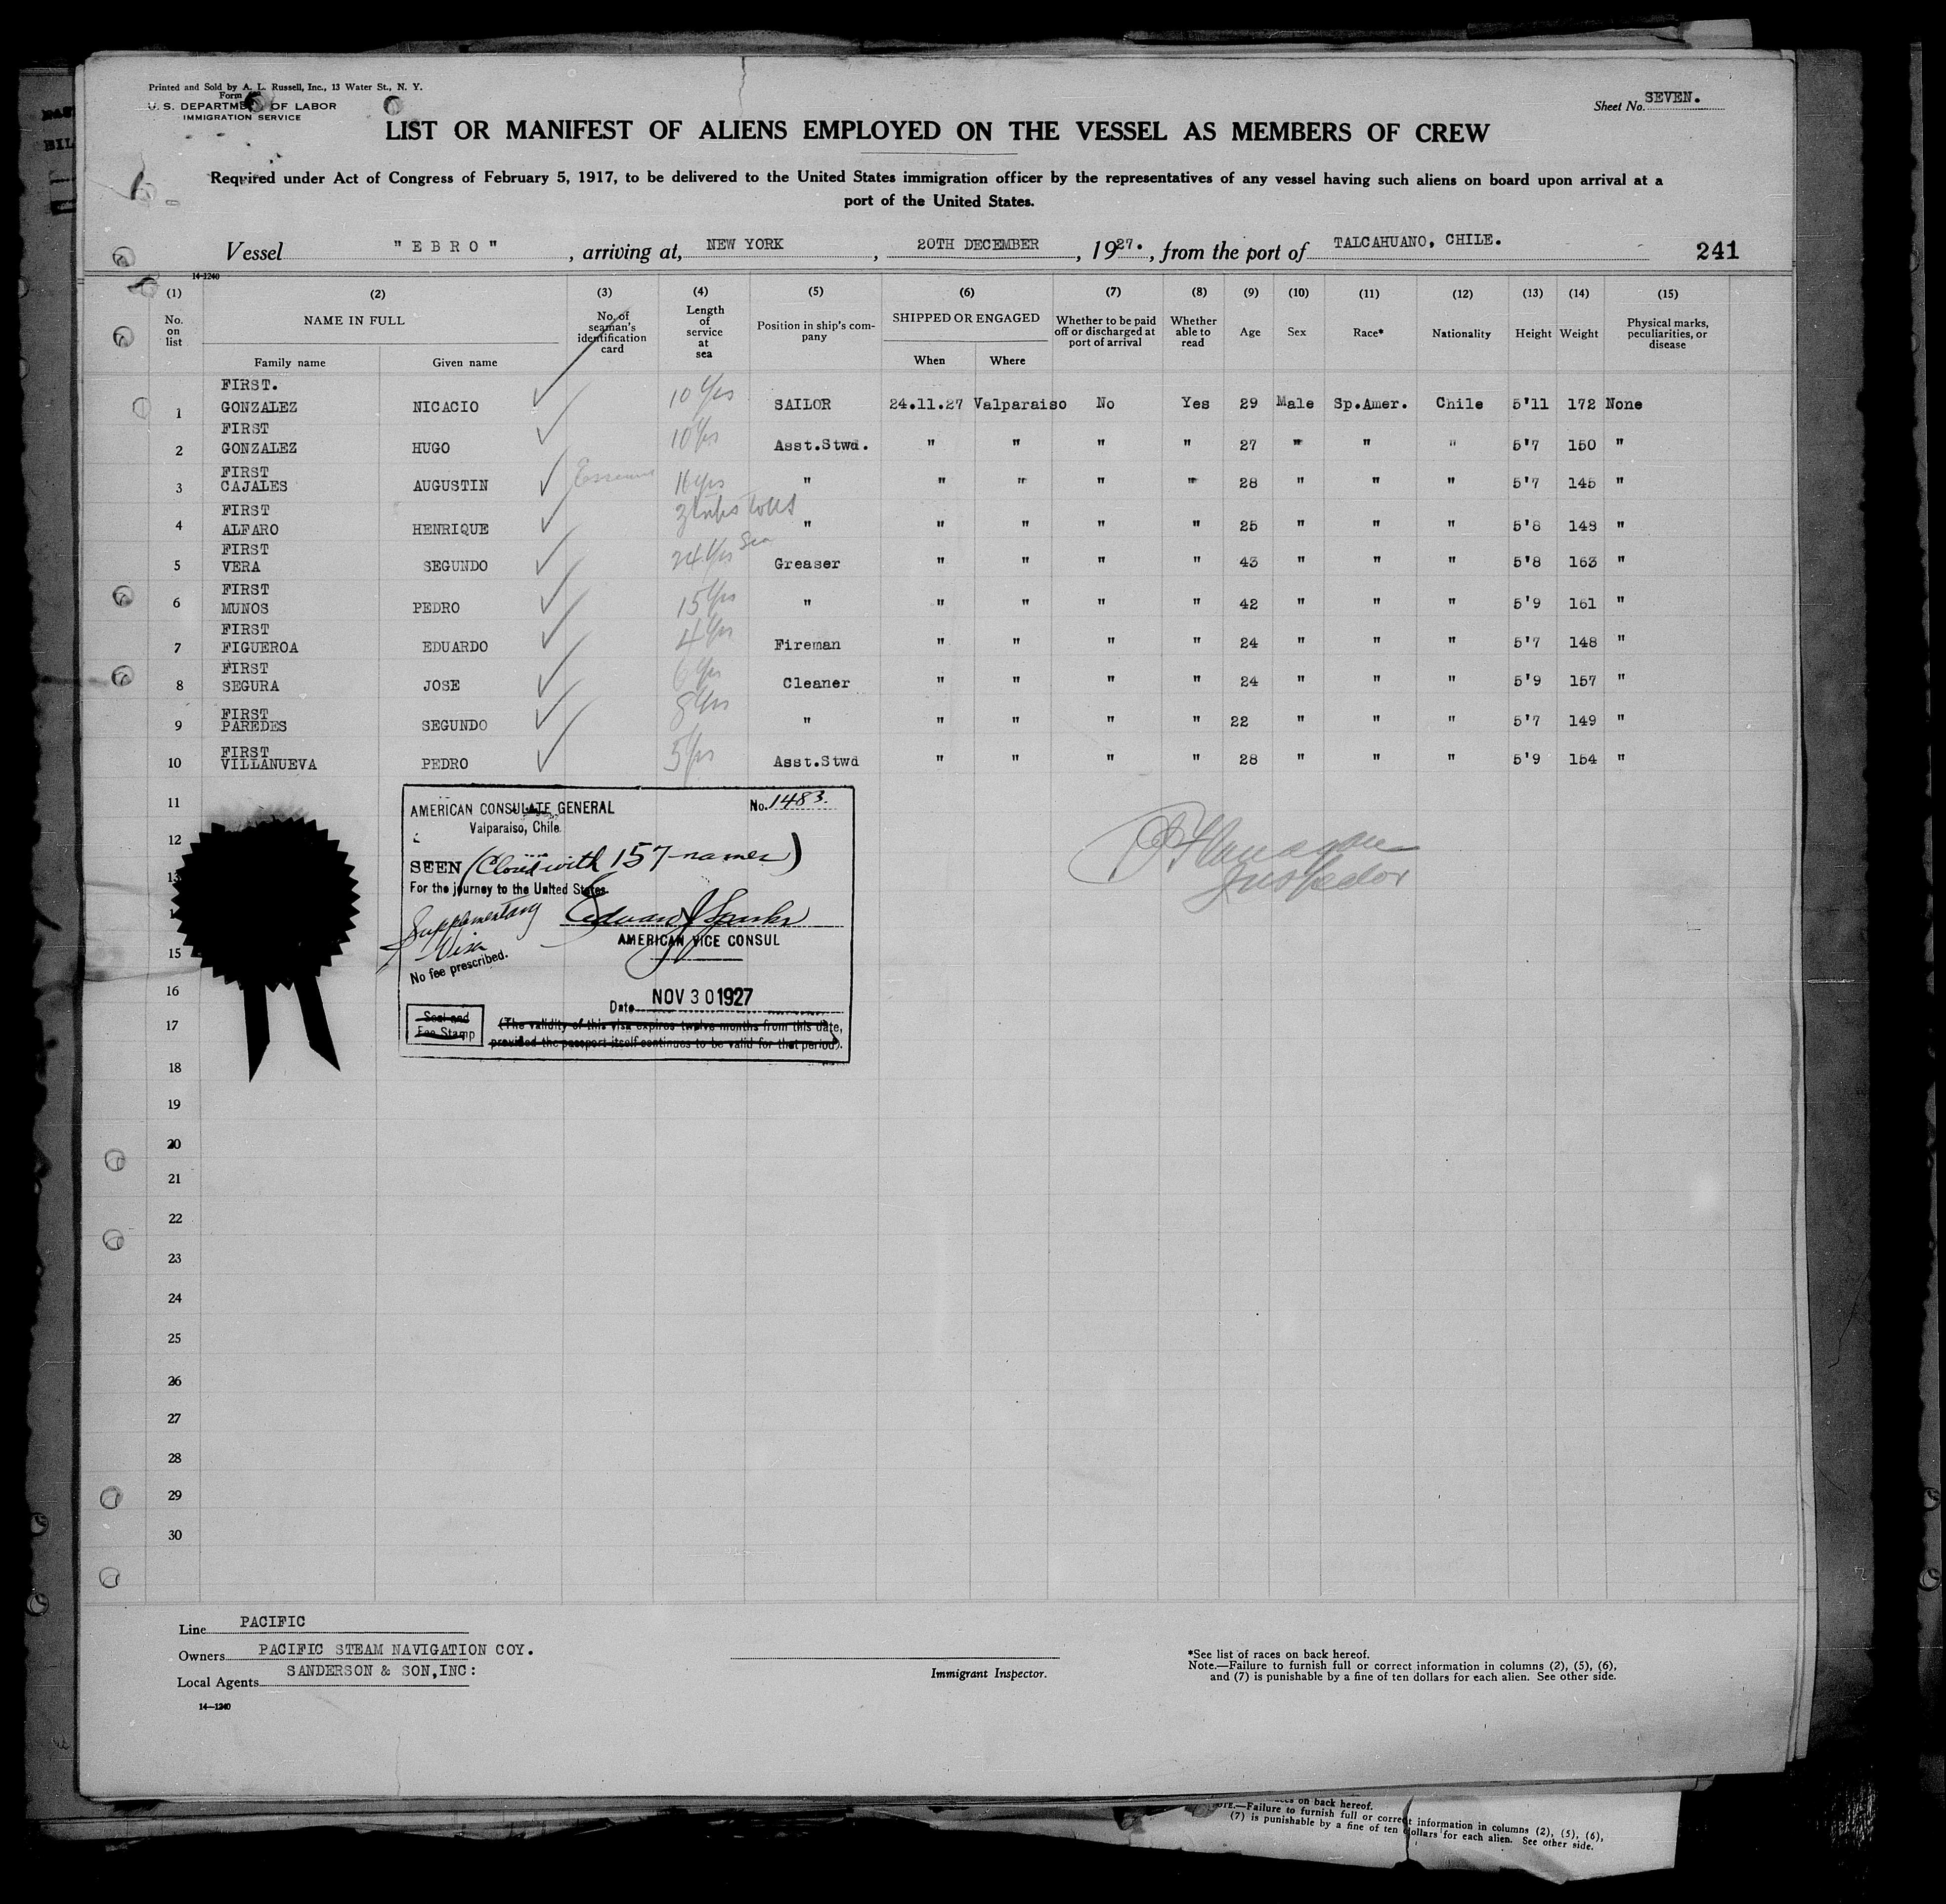 Printed and Sold by A. L. Russell, Inc., 13 Water St., N. Y.
Form
U. S. DEPARTMENT OF LABOR
IMMIGRATION SERVICE
Sheet No. SEVEN.
LIST OR MANIFEST OF ALIENS EMPLOYED ON THE VESSEL AS MEMBERS OF CREW
Required under Act of Congress of February 5, 1917, to be delivered to the United States immigration officer by the representatives of any vessel having such aliens on board upon arrival at a
port of the United States.
Vessel "EBRO", arriving at, NEW YORK, 20TH DECEMBER, 1927., from the port of TALCAHUANO, CHILE. 241
14-1240
(1) (2) (3) (4) (5) (6) (7) (8) (9) (10) (11) (12) (13) (14) (15)
No. on list NAME IN FULL Family name Given name No. of seaman's identification card Length of service at sea Position in ship's company SHIPPED OR ENGAGED When Where Whether to be paid off or discharged at port of arrival Whether able to read Age Sex Race* Nationality Height Weight Physical marks, peculiarities, or disease
FIRST.
1 GONZALEZ NICACIO 10 Yrs SAILOR 24.11.27 Valparaiso No Yes 29 Male Sp.Amer. Chile 5'11 172 None
FIRST
2 GONZALEZ HUGO 10 Yrs Asst.Stwd. " " " " 27 " " " 5'7 150 "
FIRST
3 CAJALES AUGUSTIN Yrs " " " " " 28 " " " 5'7 145 "
FIRST
4 ALFARO HENRIQUE " " " " " 25 " " " 5'8 148 "
FIRST
5 VERA SEGUNDO 24 Yrs Sea Greaser " " " " 43 " " " 5'8 163 "
FIRST
6 MUNOS PEDRO 15 Yrs " " " " " 42 " " " 5'9 161 "
FIRST
7 FIGUEROA EDUARDO 4 Yrs Fireman " " " " 24 " " " 5'7 148 "
FIRST
8 SEGURA JOSE 6 Yrs Cleaner " " " " 24 " " " 5'9 157 "
FIRST
9 PAREDES SEGUNDO 8 Yrs " " " " " 22 " " " 5'7 149 "
FIRST
10 VILLANUEVA PEDRO 5 Yrs Asst.Stwd " " " " 28 " " " 5'9 154 "
11
12
13
15
16
17
18
19
20
21
22
23
24
25
26
27
28
29
30
AMERICAN CONSULATE GENERAL No. 1483.
Valparaiso, Chile
SEEN (Closed with 157 names)
For the journey to the United States.
Supplementary
Visa
AMERICAN VICE CONSUL
No fee prescribed.
Date NOV 30 1927
Seal and
Fee Stamp
(The validity of this visa expires twelve months from this date,
provided the passport itself continues to be valid for that period).
Inspector
Line PACIFIC
Owners PACIFIC STEAM NAVIGATION COY.
Local Agents SANDERSON & SON,INC:
14—1240
Immigrant Inspector.
*See list of races on back hereof.
Note.—Failure to furnish full or correct information in columns (2), (5), (6),
and (7) is punishable by a fine of ten dollars for each alien. See other side.
on back hereof.
—Failure to furnish full or correct information in columns (2), (5), (6),
(7) is punishable by a fine of ten dollars for each alien. See other side.